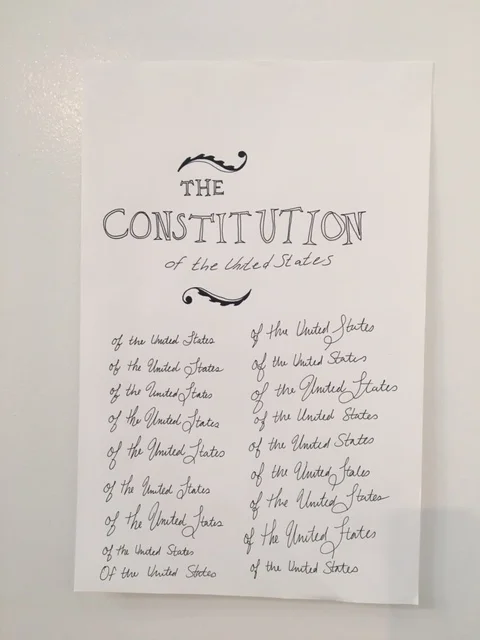 THE
CONSTITUTION
of the United States
of the United States
of the United States
of the United States
of the United States
of the United States
of the United States
of the United States
of the United States
Of the United States
of the United States
of the United States
of the United States
of the United States
of the United States
of the United States
of the United States
of the United States
of the United States